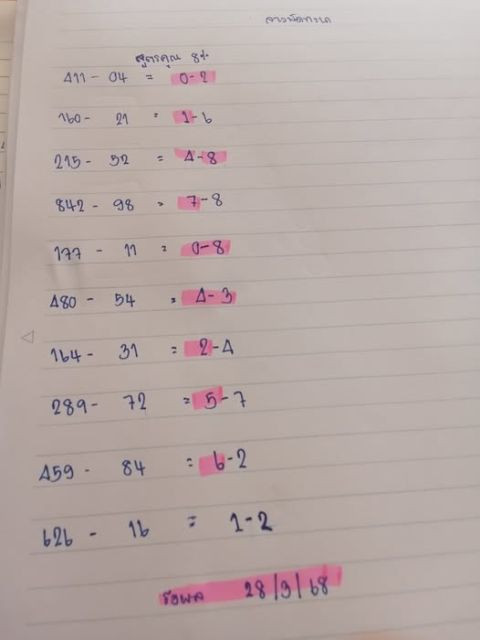 สูตรคูณ 8%
411 - 04 = 0-2
160 - 21 = 1-6
215 - 52 = 4-8
842 - 98 = 7-8
177 - 11 = 0-8
480 - 54 = 4-3
164 - 31 = 2-4
289 - 72 = 5-7
459 - 84 = 6-2
626 - 16 = 1-2
รอผล 28/3/68